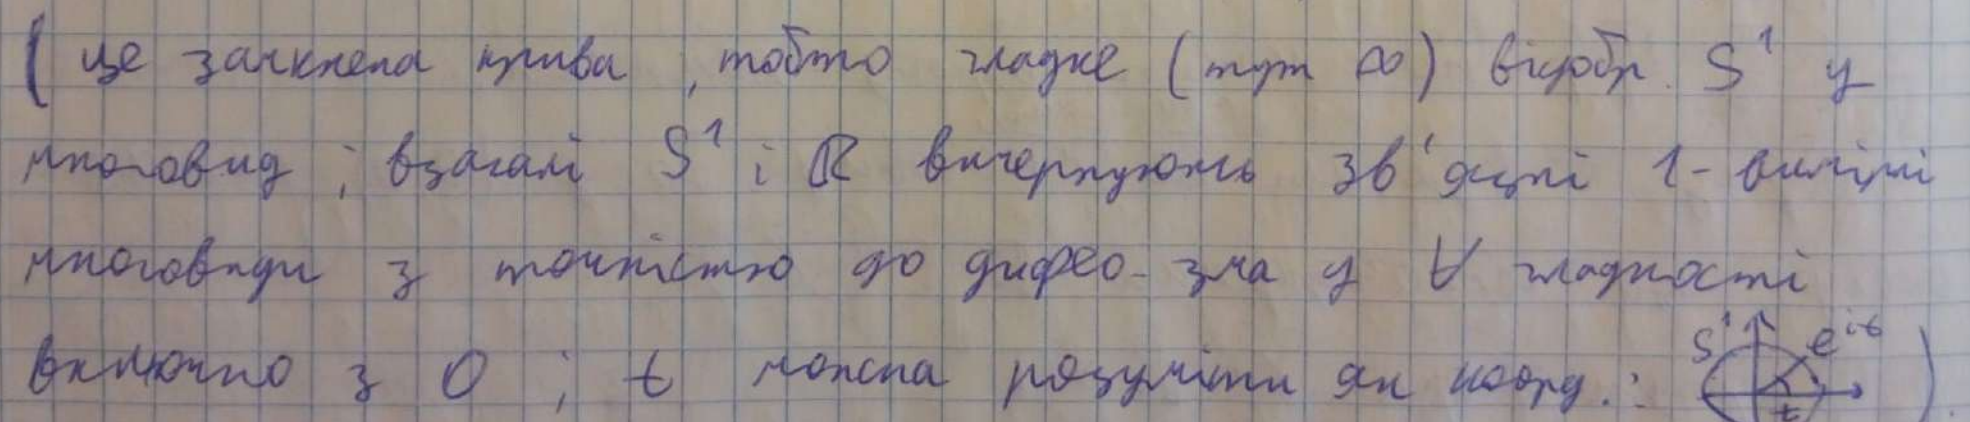 ( це замкнена крива, тобто гладке (тут ∞) відобр. S¹ у
многовид ; взагалі S¹ і ℝ вичерпують зв'язні 1-вимірні
многовиди з точністю до дифео-зма у ∀ гладкості
включно з 0 ; t можна розуміти як коорд. : S¹ e^{it} t )